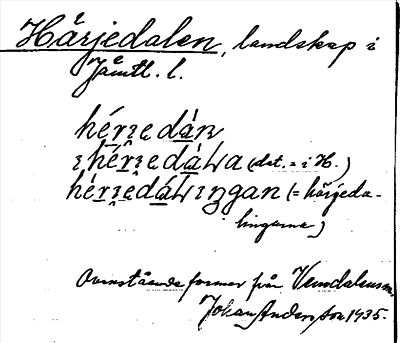 Härjedalen, landskap i
Jämtl. l.
hérịedán
ị hérịedáLa (det. = i H.)
hérịẹdáLiŋgan (= härjeda-
lingarna)
Ovanstående former från Vemdalens sn.
Johan Anderson 1935.